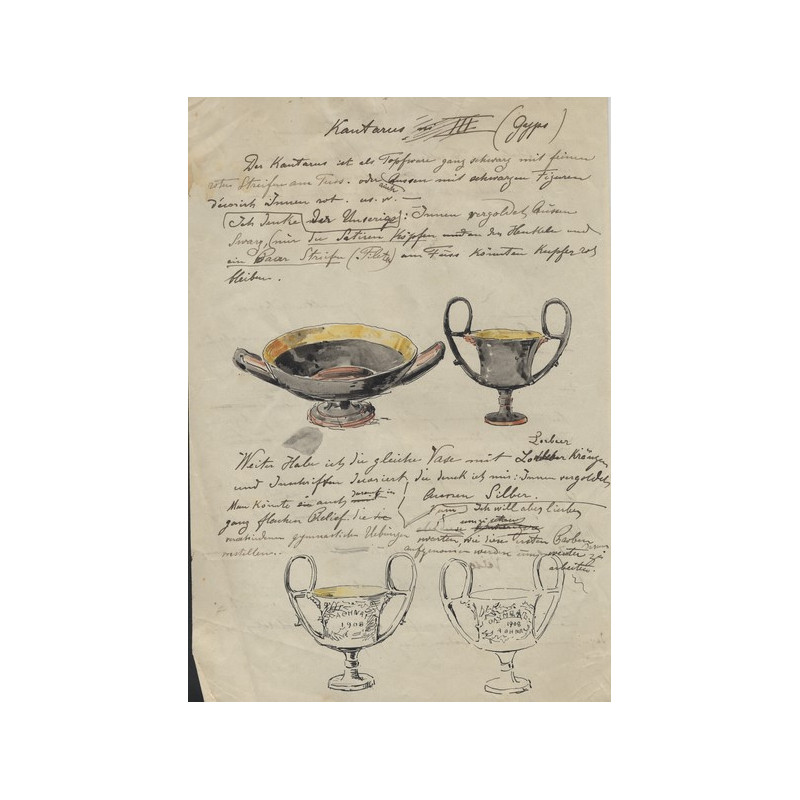 Kantarus III (Gyps)
Der Kantarus ist als Topfware ganz schwarz mit feinen
roten Streifen am Fuss. oder Aussen mit schwarzen Figuren
auch
decorirt Innen rot. us. w. —
(Ich denke der Unserige): Innen vergoldet Aussen
Swarz, (nur die Satiren Köpfen und an den Henkeln und
ein Paar Streifen am Fuss könnten Kupfer rot
bleiben.
Lorbeer
Weiter Habe ich die gleiche Vase mit Kränzen
und Inschriften decoriert, die denk ich mir: Innen vergoldet
Aussen Silber.
Man könnte auch in
Ich will aber lieber
ganz flachen Relief die
gymnastischen Uebungen
warten, wie diese ersten Proben
aufgenommen werden weiter zu
vorstellen.
arbeiten.
ΑΘΗΝΑΙ
1908
1908
ΑΘΗΝΑΙ